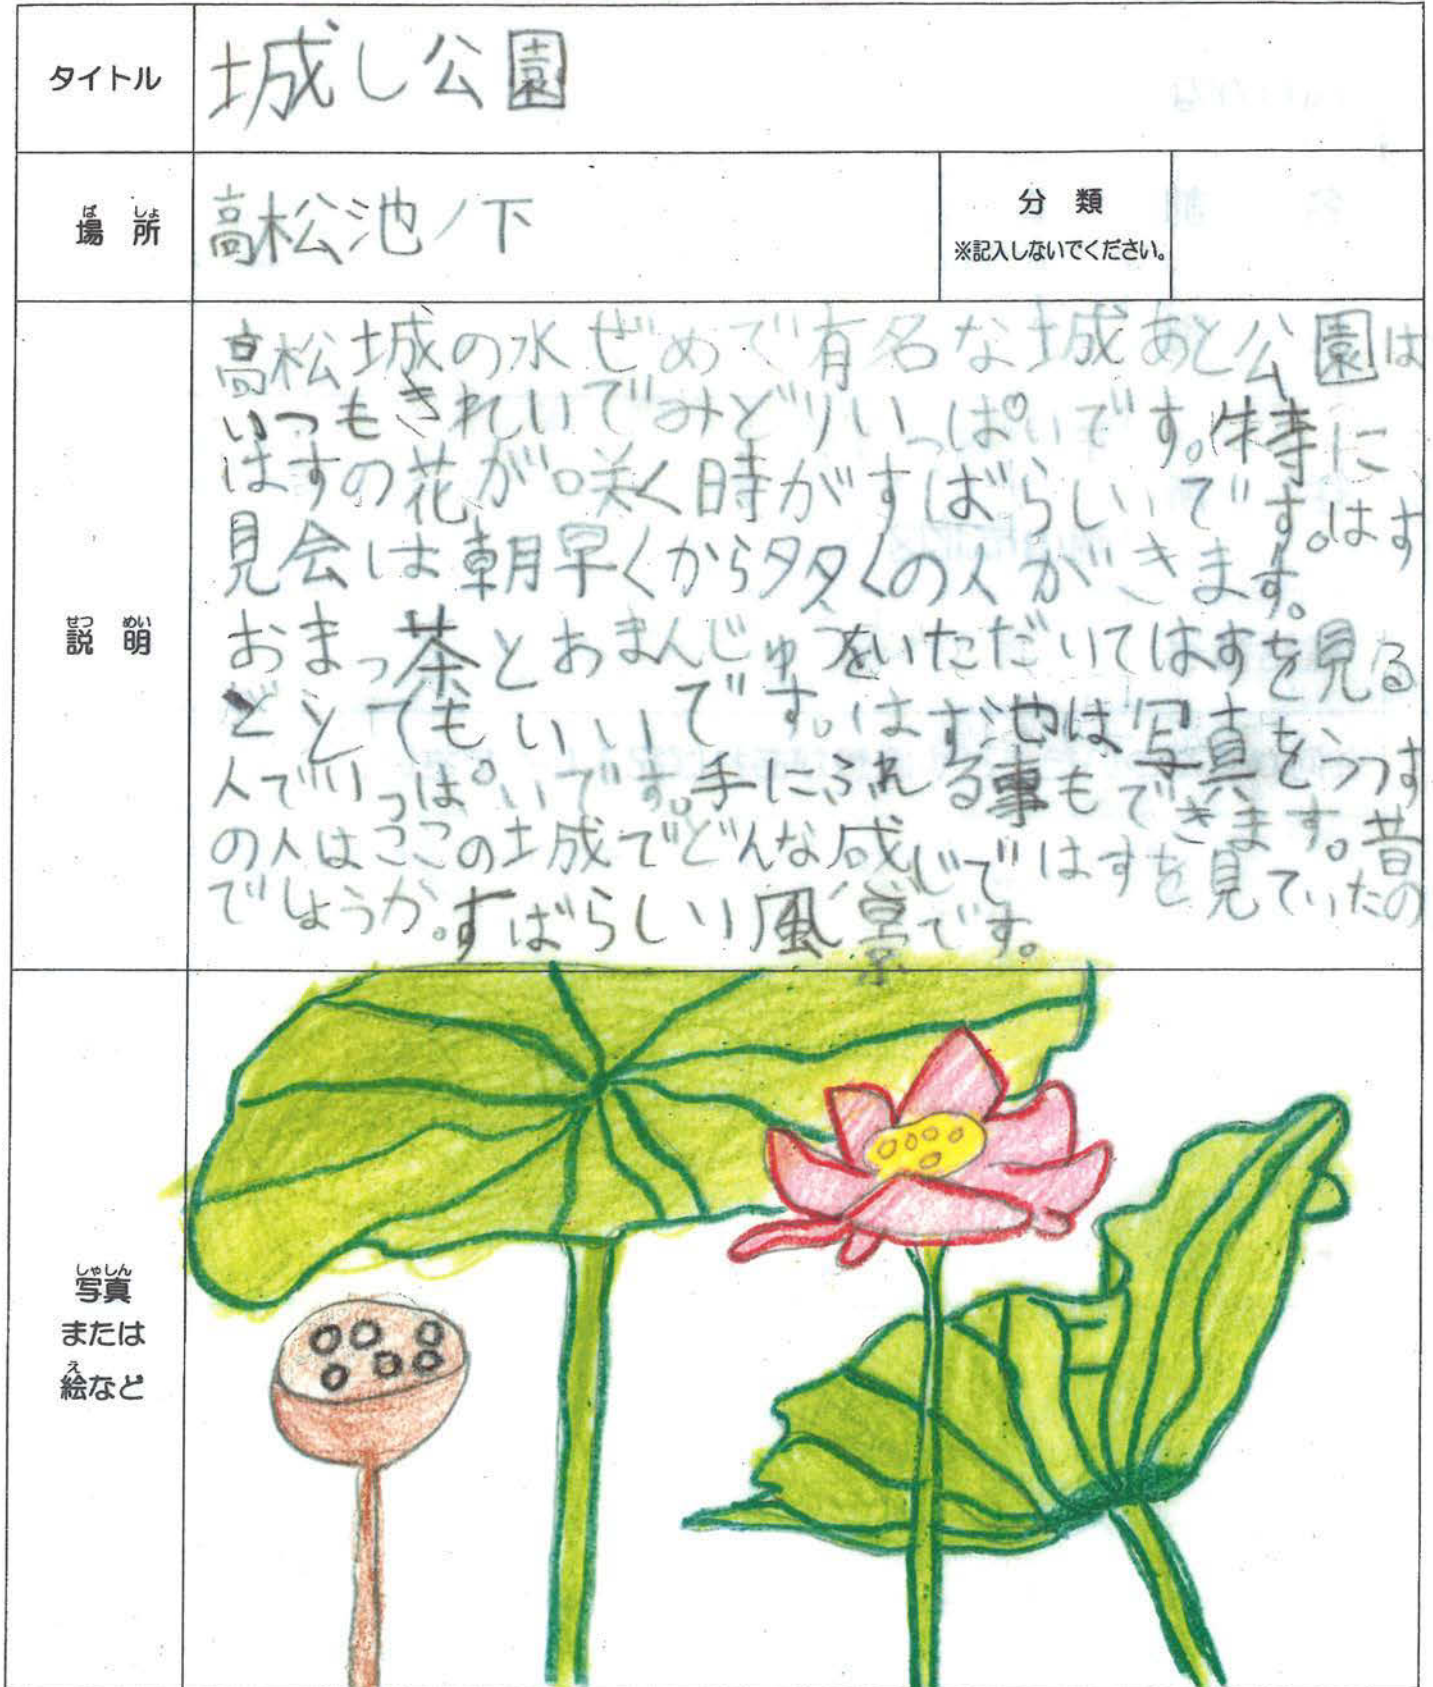 タイトル
城し公園
ばしょ
場所
高松池ノ下
分類
※記入しないでください。
せつめい
説明
高松城の水ぜめで有名な城あと公園は
いつもきれいでみどりいっぱいです。特に
はすの花が咲く時がすばらしいです。はす
見会は朝早くから多くの人がきます。
おまっ茶とおまんじゅうをいただいてはすを見る
ととてもいいです。はす池は写真をうつす
人でいっぱいです。手にふれる事もできます。昔
の人はここの城でどんな感じではすを見ていたの
でしょうか。すばらしい風景です。
しゃしん
写真
または
え
絵など